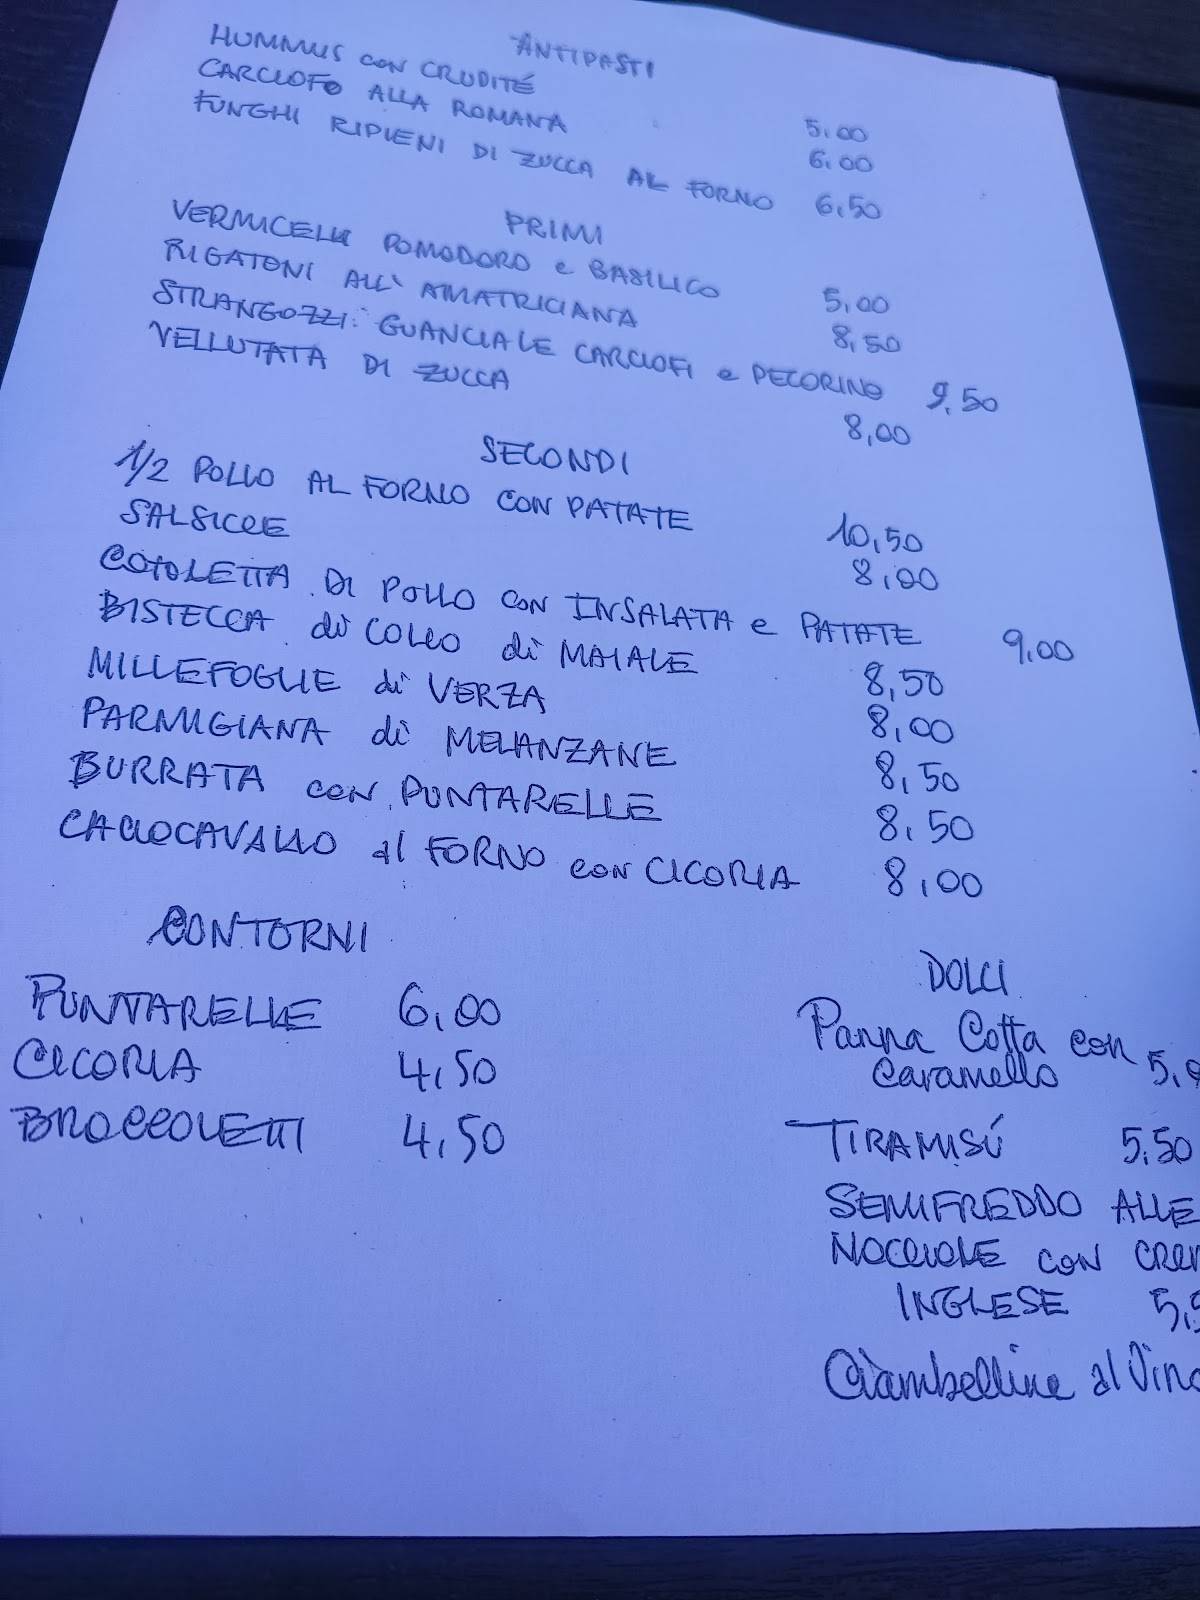 ANTIPASTI
HUMMUS con CRUDITÉ 5,00
CARCIOFO ALLA ROMANA 6,00
FUNGHI RIPIENI DI ZUCCA AL FORNO 6,50
PRIMI
VERMICELLI POMODORO e BASILICO 5,00
RIGATONI ALL'AMATRICIANA 8,50
STRANGOZZI: GUANCIALE CARCIOFI e PECORINO 9,50
VELLUTATA DI ZUCCA 8,00
SECONDI
1/2 POLLO AL FORNO CON PATATE 10,50
SALSICCE 8,00
COTOLETTA DI POLLO CON INSALATA e PATATE 9,00
BISTECCA di COLLO di MAIALE 8,50
MILLEFOGLIE di VERZA 8,00
PARMIGIANA di MELANZANE 8,50
BURRATA con PUNTARELLE 8,50
CACIOCAVALLO al FORNO con CICORIA 8,00
CONTORNI
PUNTARELLE 6,00
CICORIA 4,50
BROCCOLETTI 4,50
DOLCI
Panna Cotta con
Caramello
TIRAMISÚ 5,50
SEMIFREDDO ALLE
NOCCIOLE CON
INGLESE
Ciambelline al Vino